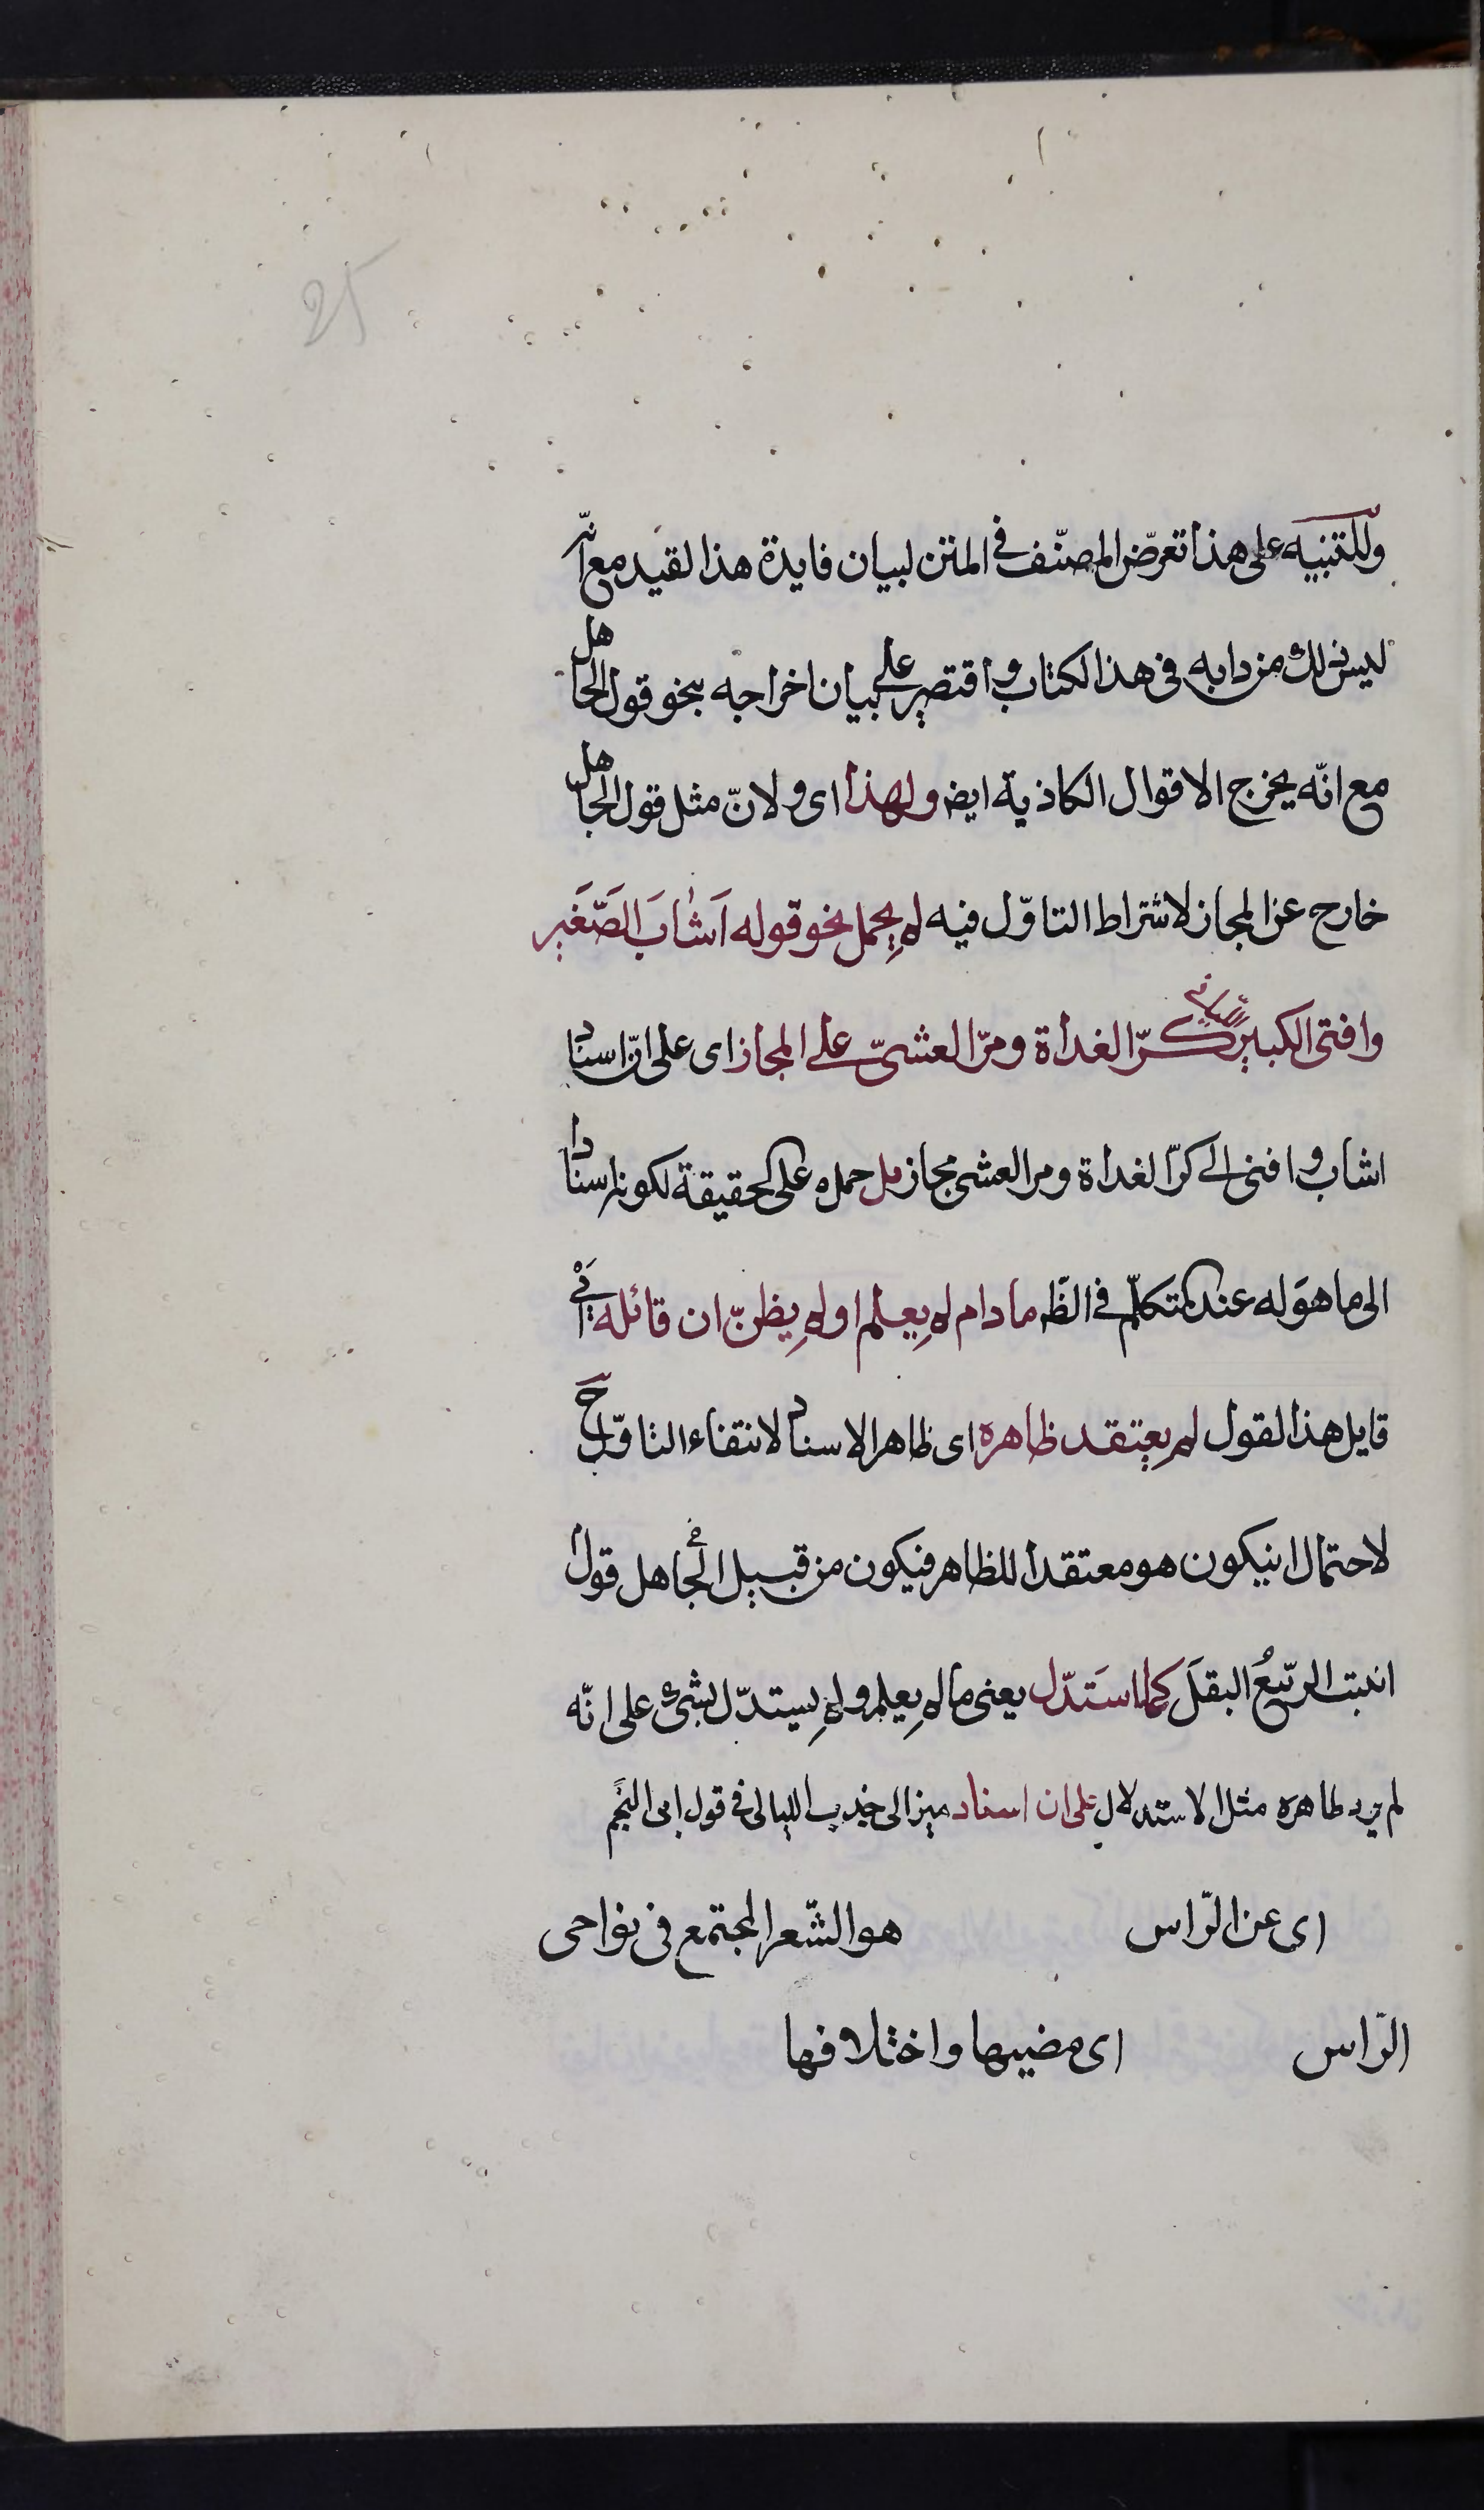 25
وللتنبيه على هذا تعرّض المصنّف فى المتن لبيان فايدة هذا لقيد مع انّه
ليس ذلك من دابه فى هذا لكتاب و اقتصر على بيان اخراجه بنحو قول الجاهل
مع انّه يخرج الاقوال الكاذبة ايض ولهذا اى ولانّ مثل قول الجاهل
خارج عن المجاز لاشتراط التاوّل فيه لم يحمل نحو قوله اَشَابَ الصّغَير
وافتى الكبير كرّ الغداة ومرّ العشىّ على المجاز اى على انّ اسناد
اشاب و افنى الى كرّ الغداة ومر العشى مجاز بل حمله على الحقيقة لكونه اسنادا
الى ما هوَ له عند المتكلّم فى الظّ مادام لم يعلم او لم يظنّ ان قائله اى
قايل هذا القول لم يعتقد ظاهره اى ظاهر الاسناد لانتقاء التاوّل ح
لاحتمال انيكون هو معتقدا للظاهر فيكون من قبيل الجاهل قول
انبت الرّبيعُ البقلَ كما استَدّل يعنى ما لم يعلم ولم يستدّل بشئ على انّه
لم يرد ظاهره مثل الاستدلال على ان اسناد ميز الى جذب الليالى فى قول ابى النجم
اى عن الرّاس هو الشّعر المجتمع فى نواحى
الرّاس اى مضيها واختلافها